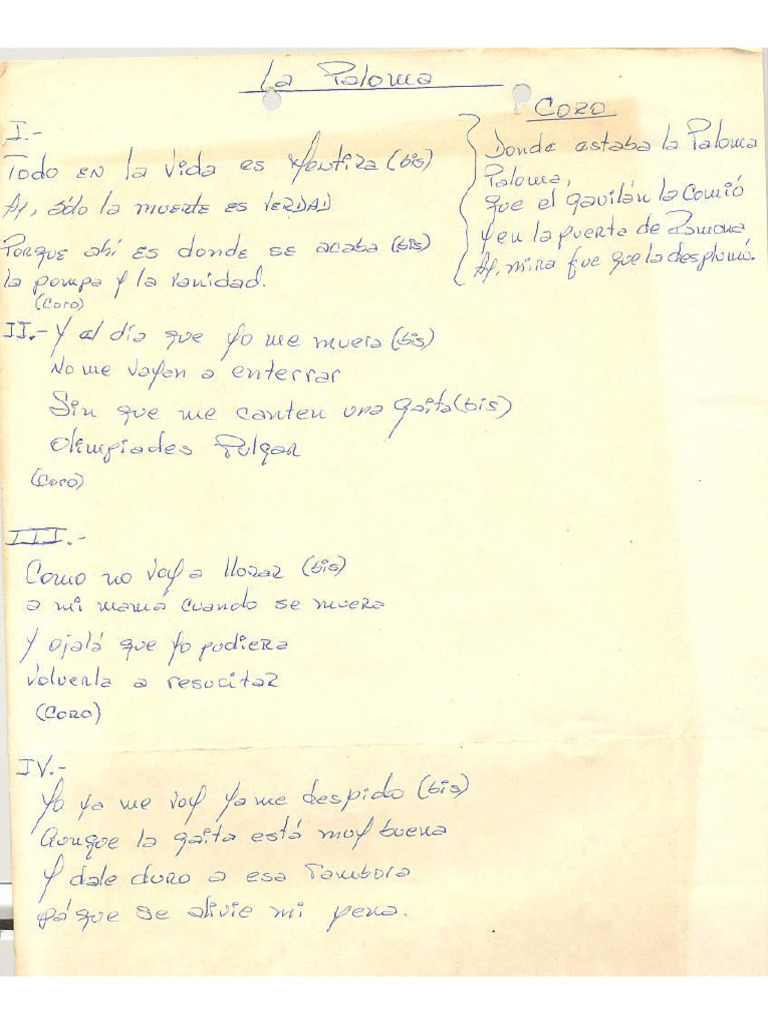 La Paloma
I.-
Todo en la vida es Mentira (bis)
Ay, sólo la muerte es VERDAD
Porque ahí es donde se acaba (bis)
la pompa y la vanidad.
(Coro)
CORO
Donde estaba la Paloma
Paloma,
que el gavilán la comió
y en la puerta de Ramona
Ay, mira fue que la desplumó.
II.- Y el día que yo me muera (bis)
No me vayan a enterrar
Sin que me canten una gaita (bis)
Olimpiades Pulgar
(Coro)
III.-
Como no voy a llorar (bis)
a mi mamá cuando se muera
Y ojalá que yo pudiera
volverla a resucitar
(CORO)
IV.-
Yo ya me voy ya me despido (bis)
Aunque la gaita está muy buena
Y dale duro a esa Tambora
pá que se alivie mi pena.